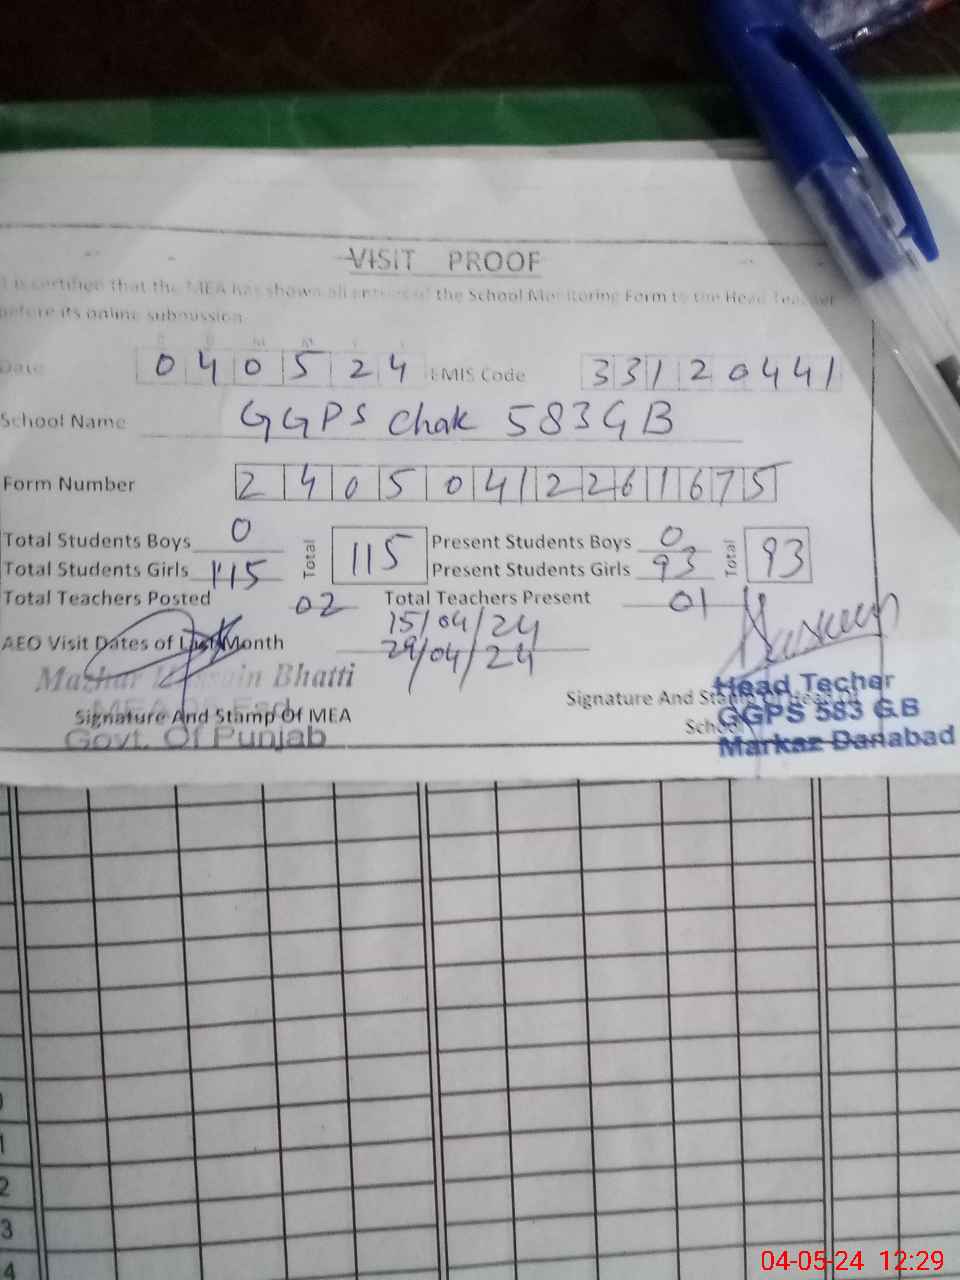 VISIT PROOF
It is certified that the MEA has shown all entries of the School Monitoring Form to the Head Teacher
before its online submission
Date 0 4 0 5 2 4 EMIS Code 3 3 1 2 0 4 4 1
School Name GGPS Chak 583 GB
Form Number 2 4 0 5 0 4 1 2 2 6 1 6 7 5
Total Students Boys 0 Total 115 Present Students Boys 0 Total 93
Total Students Girls 115 Present Students Girls 93
Total Teachers Posted 02 Total Teachers Present 01
AEO Visit Dates of Last Month 15/04/24
29/04/24
Bhatti
Signature And Stamp Of MEA
Govt. Of Punjab
Signature And Stamp Of Head Of
School
Head Techer
GGPS 583 G.B
Markaz Danabad
1
2
3
4
04-05-24 12:29